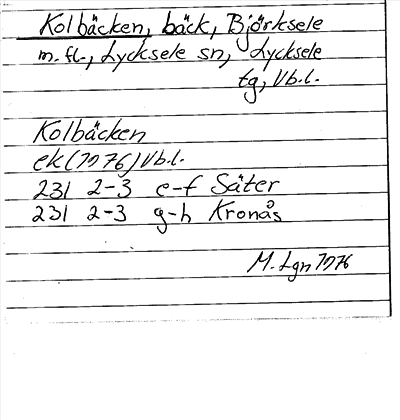 Kolbäcken, bäck, Björksele
m.fl., Lycksele sn, Lycksele
tg, Vb.l.
Kolbäcken
ek(1976)Vb.l.
231 2-3 e-f Säter
231 2-3 g-h Kronås
M. Lgn 1976